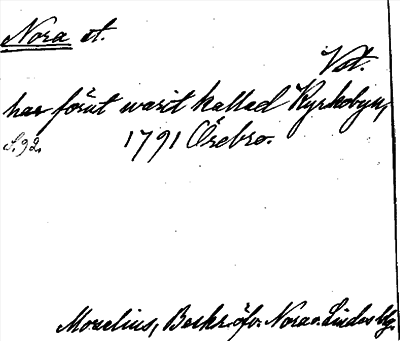 Nora st.
Vst.
har förut warit kallad Kyrkobyn,
S. 92. 1791 Örebro.
Morelius, Beskr. öfv. Nora o. Lindes bg.